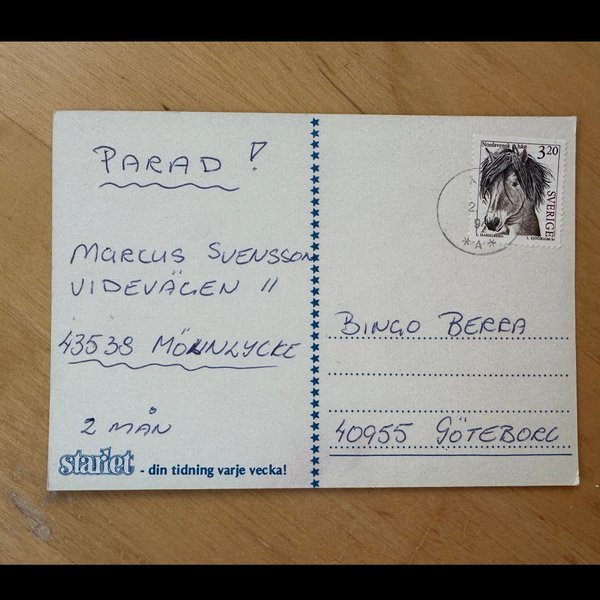 PARAD!
MARCUS SVENSSON
VIDEVÄGEN 11
43538 MÖLNLYCKE
2 MÅN
starlet - din tidning varje vecka!
Nordsvensk häst
3.20
SVERIGE
2
94
*A*
BINGO BERRA
40955 GÖTEBORG